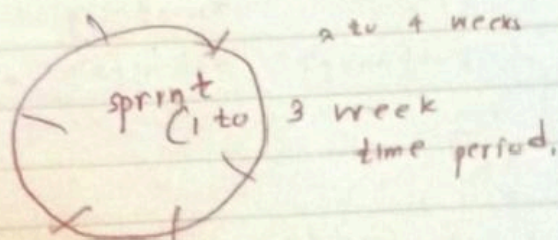 2 to 4 weeks
sprint
(1 to 3 week
time period.